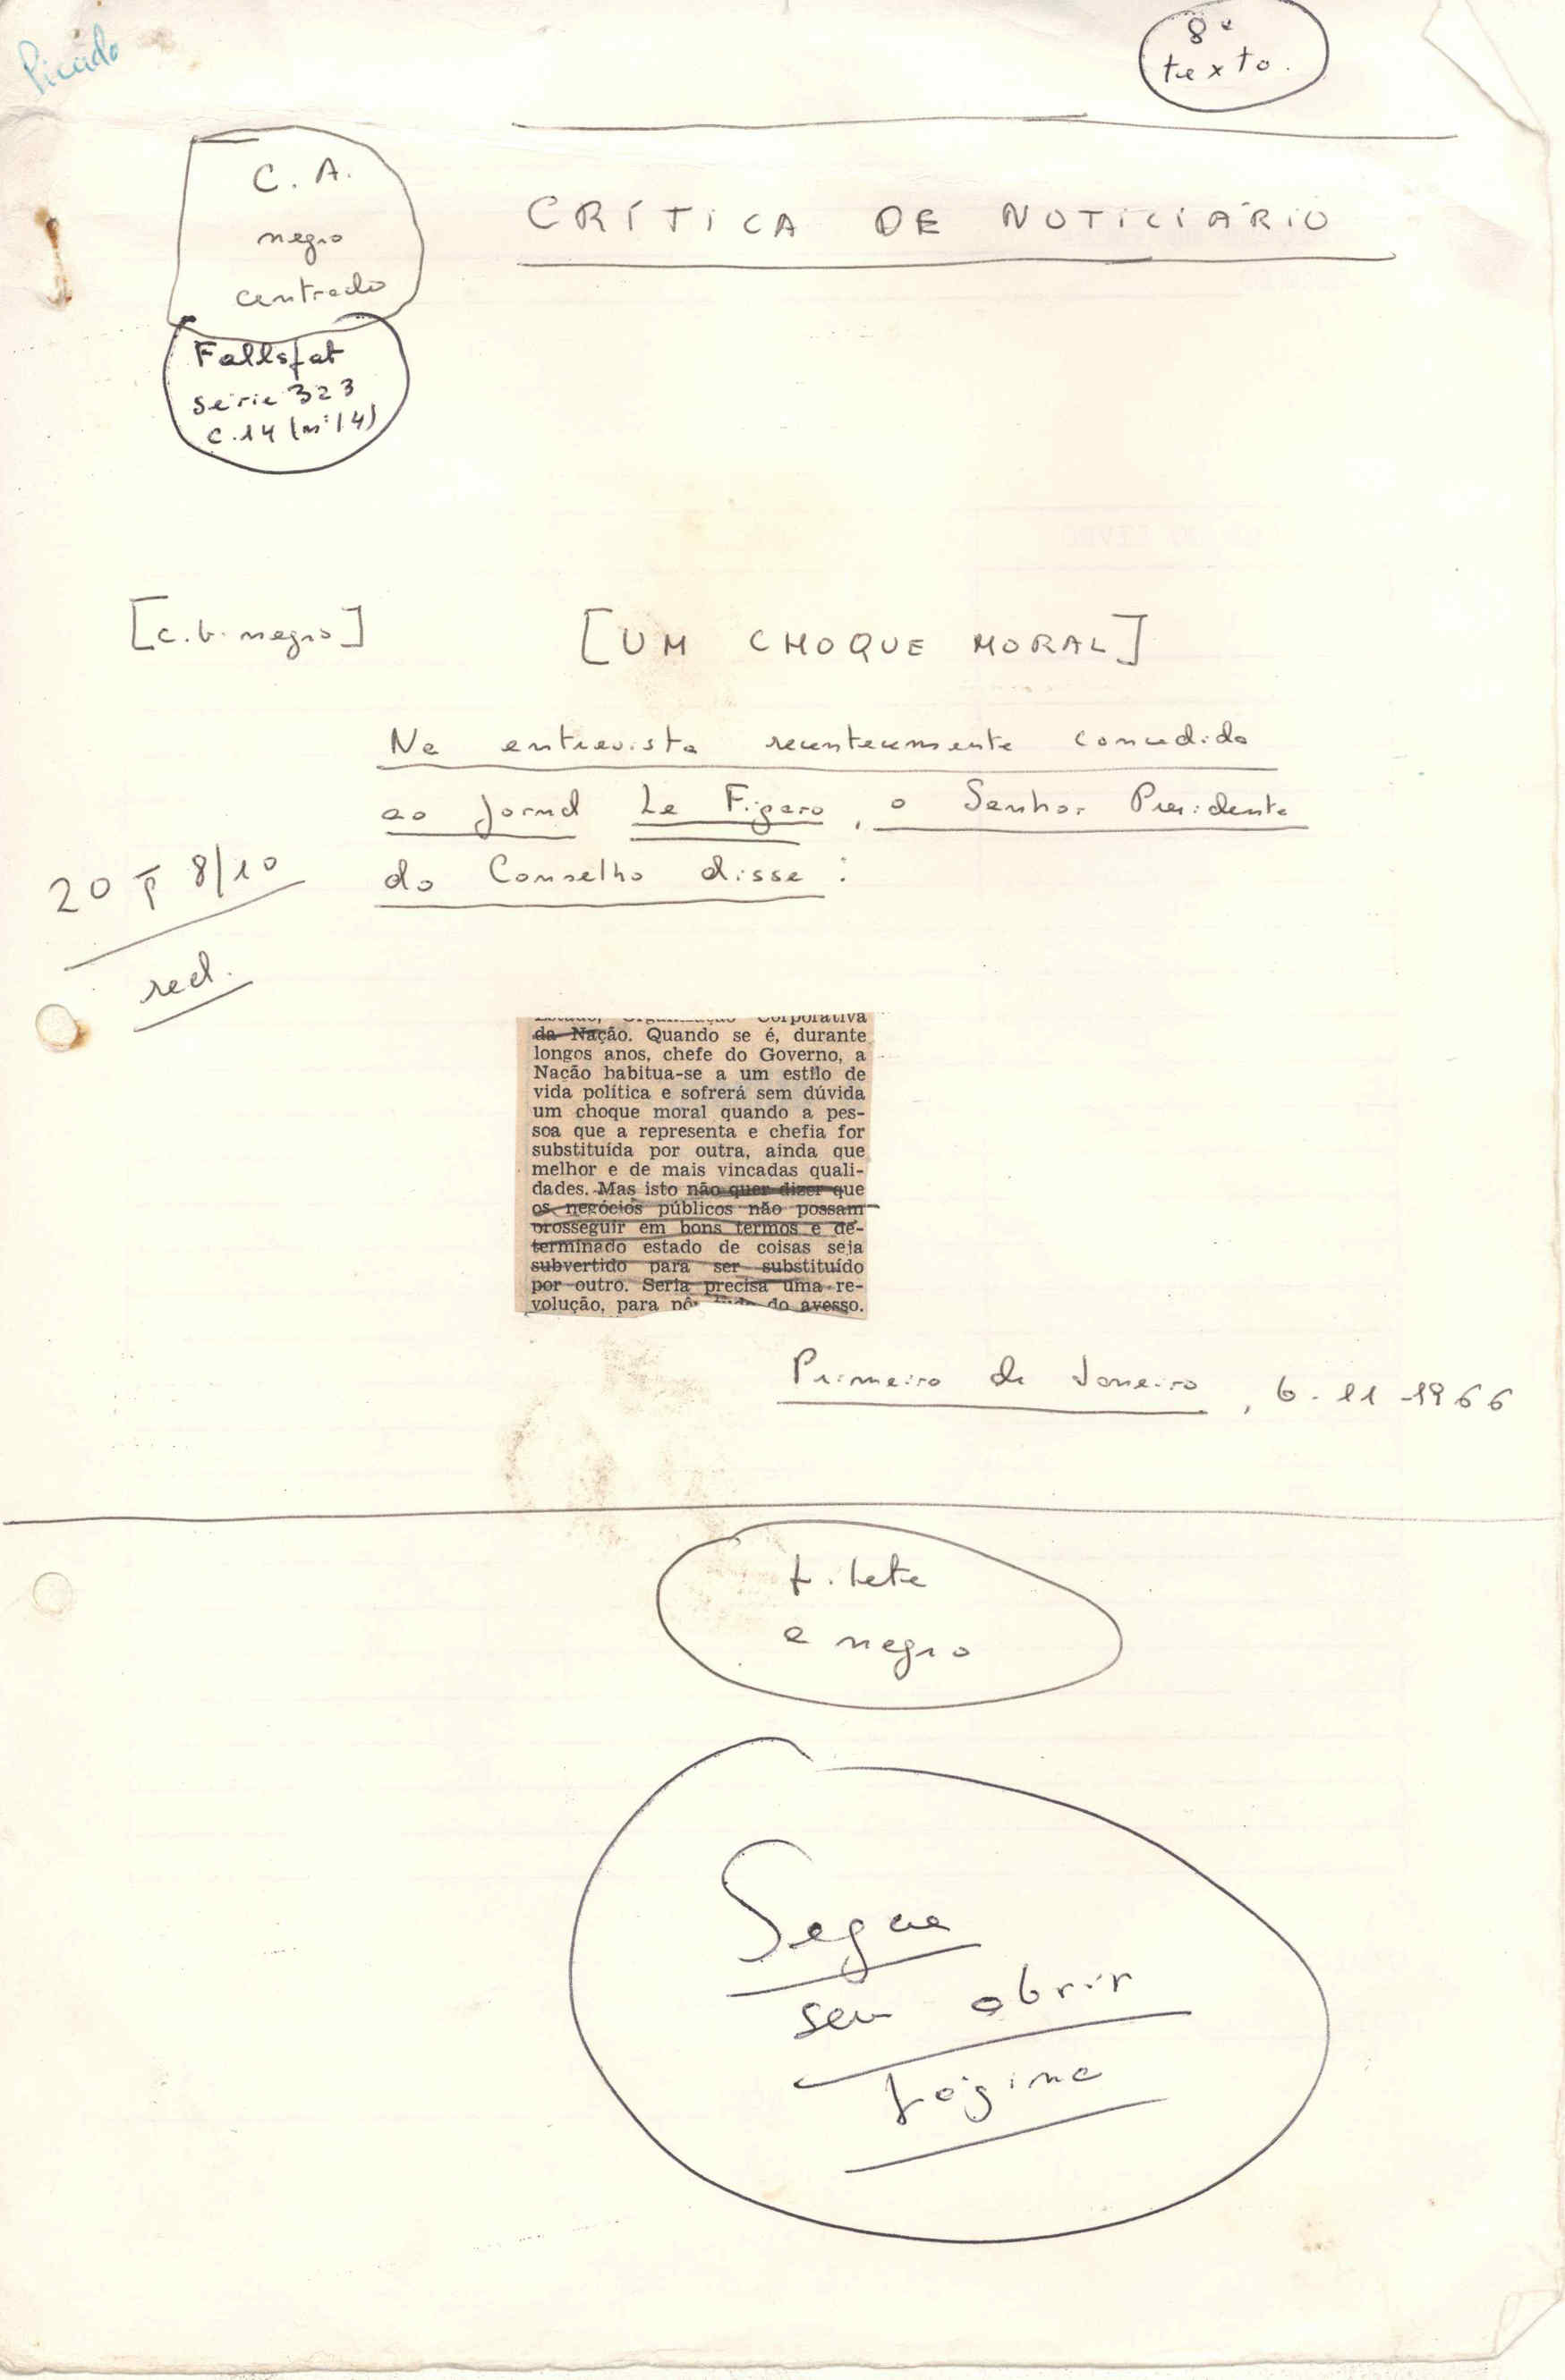 Picado
8º
texto.
C. A.
negro
centrado
CRÍTICA DE NOTICIÁRIO
Fallsfat
série 323
c.14 (nº14)
[c.b. negro] [UM CHOQUE MORAL]
Na entrevista recentemente concedida
ao jornal Le Figaro, o Senhor Presidente
do Conselho disse:
20 p 8/10
red.
Estado, Organização Corporativa
da Nação. Quando se é, durante
longos anos, chefe do Governo, a
Nação habitua-se a um estilo de
vida política e sofrerá sem dúvida
um choque moral quando a pes-
soa que a representa e chefia for
substituída por outra, ainda que
melhor e de mais vincadas quali-
dades. Mas isto não quer dizer que
os negócios públicos não possam
prosseguir em bons termos e de-
terminado estado de coisas seja
subvertido para ser substituído
por outro. Seria precisa uma re-
volução, para do avesso.
Primeiro de Janeiro, 6-11-1966
filete
e negro
Segue
sem abrir
página